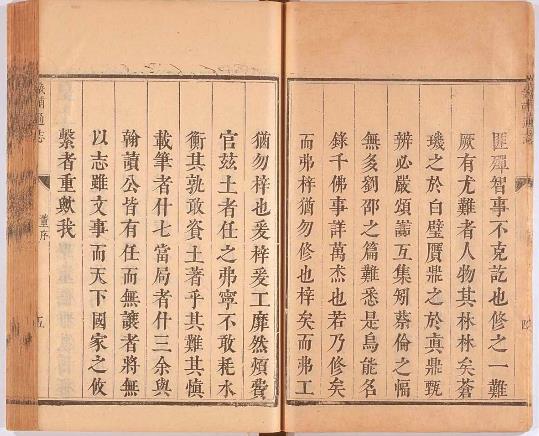 匪殫智事不克訖也修之一難
厥有尤難者人物其林林矣蒼
璣之於白璧贋鼎之於真鼎甄
辨必嚴頌譸互集矧蔡倫之幅
無多劉邵之篇難悉是烏能名
錄千佛事詳萬杰也若乃修矣
而弗梓猶勿修也梓矣而弗工
猶勿梓也爰梓爰工靡然煩費
官茲土者任之弗寧不敢耗水
衡其孰敢資土著乎其難其慎
載筆者什七當局者什三余與
翰讀公皆有任而無讓者將無
以志雖文事而天下國家之攸
繫者重歟我
通志
董序
五